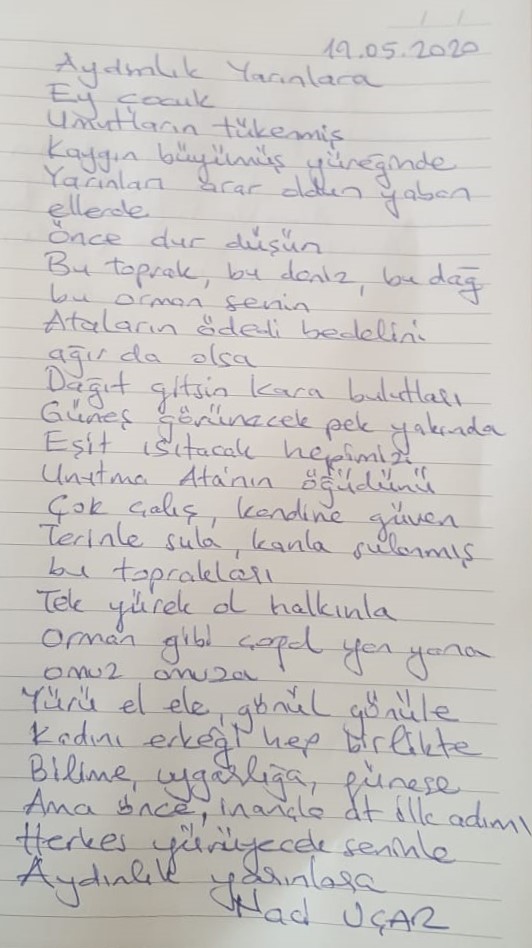 19.05.2020
Aydınlık Yarınlara
Ey çocuk
Umutların tükenmiş
Kaygın büyümüş yüreğinde
Yarınları arar oldun yaban
ellerde
Önce dur düşün
Bu toprak, bu deniz, bu dağ
bu orman senin
Ataların ödedi bedelini
ağır da olsa
Dağıt gitsin kara bulutları
Güneş görünecek pek yakında
Eşit ısıtacak hepimizi
Unutma Ata'nın öğüdünü
Çok çalış, kendine güven
Terinle sula, kanla sulanmış
bu toprakları
Tek yürek ol halkınla
Orman gibi çoğal yan yana
omuz omuza
Yürü el ele, gönül gönüle
Kadını erkeği hep birlikte
Bilime, uygarlığa, güneşe
Ama önce, inançla at ilk adımı
Herkes yürüyecek seninle
Aydınlık yarınlara
UÇAR